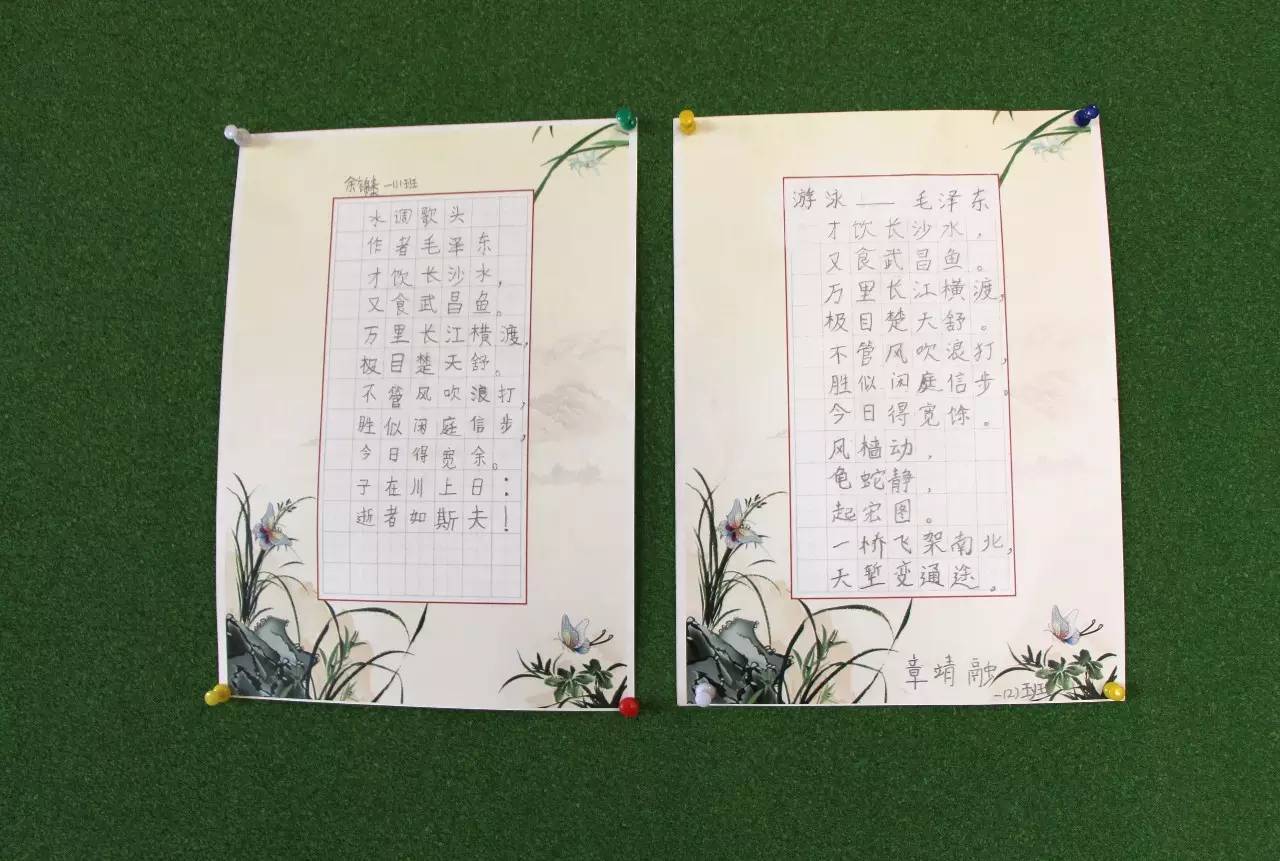 余 一(1)班
水调歌头
作者毛泽东
才饮长沙水，
又食武昌鱼。
万里长江横渡，
极目楚天舒。
不管风吹浪打，
胜似闲庭信步，
今日得宽余。
子在川上曰：
逝者如斯夫！
游泳——毛泽东
才饮长沙水，
又食武昌鱼。
万里长江横渡，
极目楚天舒。
不管风吹浪打，
胜似闲庭信步。
今日得宽馀。
风樯动，
龟蛇静，
起宏图。
一桥飞架南北，
天堑变通途。
章靖融
一(2)班